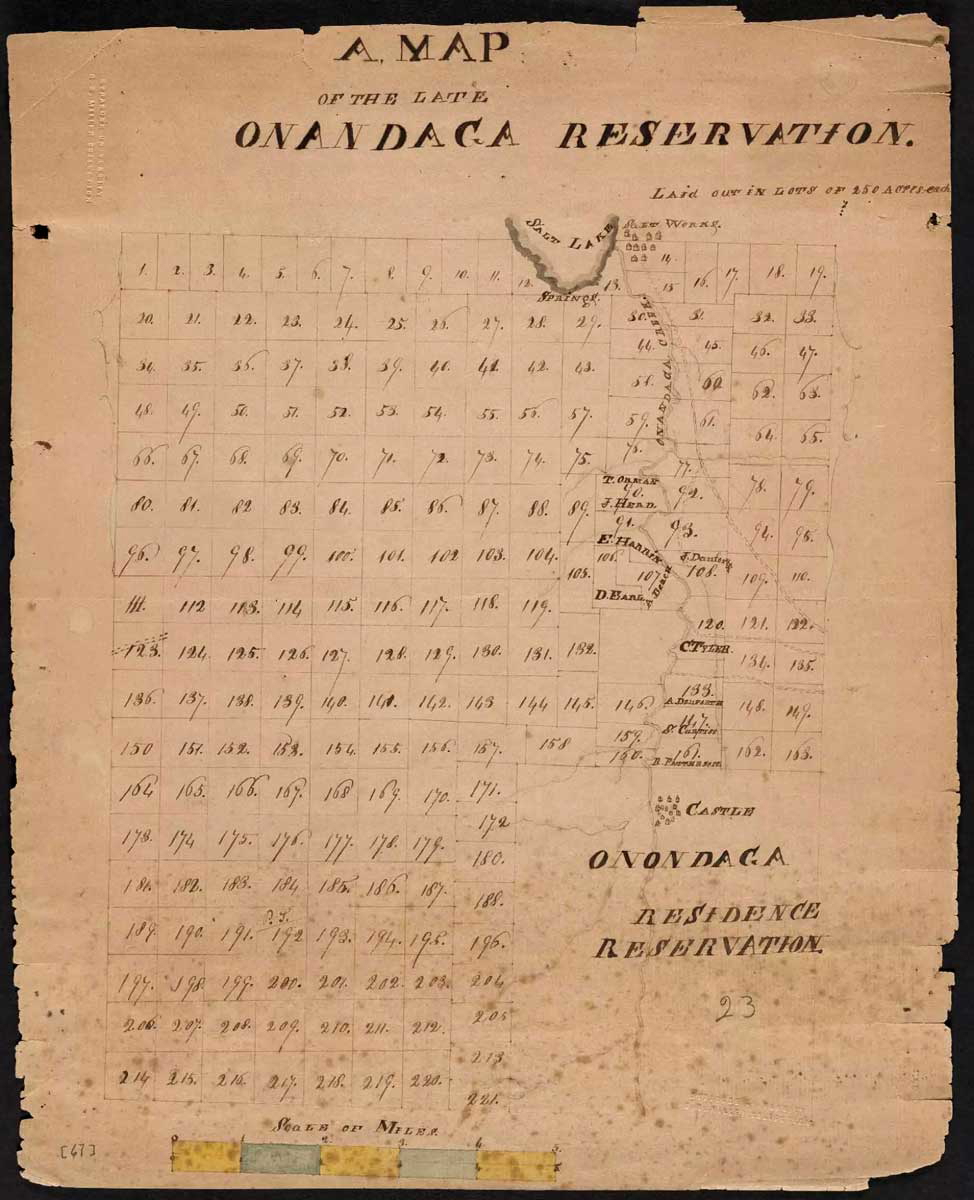 A MAP
OF THE LATE
ONANDAGA RESERVATION.
Laid out in LOTS OF 250 Acres each
SALT LAKE
Salt Works.
Springs.
1. 2. 3. 4. 5. 6. 7. 8. 9. 10. 11. 12. 13. 14. 15 16. 17. 18. 19.
20. 21. 22. 23. 24. 25. 26. 27. 28. 29. 30. 31. 32. 33.
34. 35. 36. 37. 38. 39. 40. 41. 42. 43. 44. 45. 46. 47.
48. 49. 50. 51. 52. 53. 54. 55. 56. 57. 58. 59. 60 61. 62. 63. 64. 65.
ONANDAGA CREEK
66. 67. 68. 69. 70. 71. 72. 73. 74. 75. 76. 77. 78. 79.
T. Orman
80. 81. 82 83. 84. 85. 86 87. 88. 89. 90. 92.
J. Herd.
91. 93. 94. 95.
E. Harris
96. 97. 98. 99. 100. 101. 102 103. 104. 105. 106. 107 108. 109. 110.
D. Earl
111. 112 113. 114 115. 116. 117. 118. 119. 120. 121. 122.
C TYLER
123. 124. 125. 126. 127. 128. 129. 130. 131. 132. 133. 134. 135.
136. 137. 138. 139. 140. 141. 142. 143 144 145. 146. 147. 148. 149.
150 151. 152. 153. 154. 155. 156. 157. 158 159. 160. 161. 162. 163.
164 165. 166. 167. 168 169. 170. 171.
172
173. 174 175. 176. 177. 178. 179.
180.
181. 182. 183. 184 185. 186. 187.
188.
189. 190. 191. 192 193. 194. 195. 196.
197. 198. 199. 200. 201. 202. 203. 204
205
206. 207. 208. 209. 210. 211. 212.
213
214 215. 216. 217. 218. 219. 220.
221.
CASTLE
ONONDAGA
RESIDENCE
RESERVATION.
23
Scale of Miles.
0 1 2. 3. 4 5.
[67]